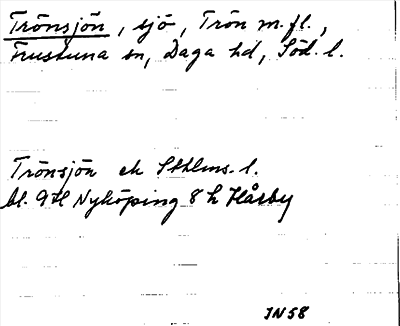 Trönsjön, sjö, Trön m.fl.,
Frustuna sn, Daga hd, Söd. l.
Trönsjön ek Sthlms. l.
bl. 9H Nyköping 8 h Håsby
IN 58